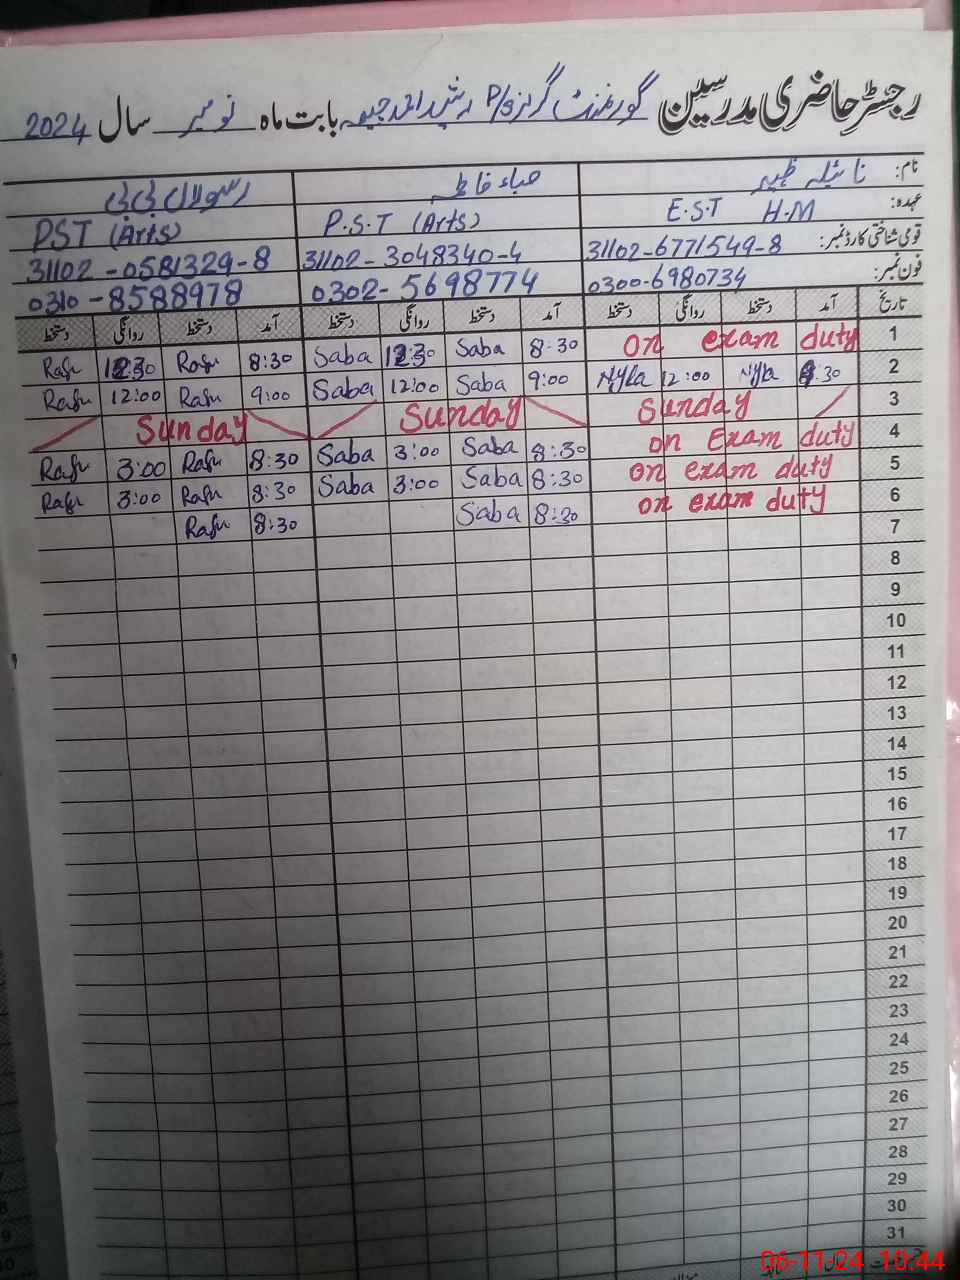 رجسٹر حاضری مدرسین گورنمنٹ گرلز P/S بابت ماہ نومبر سال 2024
نام: نائیلہ ظہیر صباء فاطمہ رسولاں بی بی
عہدہ: E.S.T H.M P.S.T (Arts) PST (Arts)
قومی شناختی کارڈ نمبر: 31102-6771549-8 31102-3048340-4 31102-0581329-8
فون نمبر: 0300-6980734 0302-5698774 0310-8588978
تاریخ آمد دستخط روانگی دستخط آمد دستخط روانگی دستخط آمد دستخط روانگی دستخط
1 on exam duty 8:30 Saba 12:30 Saba 8:30 Rasu 12:30 Rasu
2 9:30 Nyla 12:00 Nyla 9:00 Saba 12:00 Saba 9:00 Rasu 12:00 Rasu
3 Sunday Sunday Sunday
4 on Exam duty 8:30 Saba 3:00 Saba 8:30 Rasu 3:00 Rasu
5 on exam duty 8:30 Saba 3:00 Saba 8:30 Rasu 3:00 Rasu
6 on exam duty 8:30 Saba 8:30 Rasu
7
8
9
10
11
12
13
14
15
16
17
18
19
20
21
22
23
24
25
26
27
28
29
30
31
06-11-24 10:44